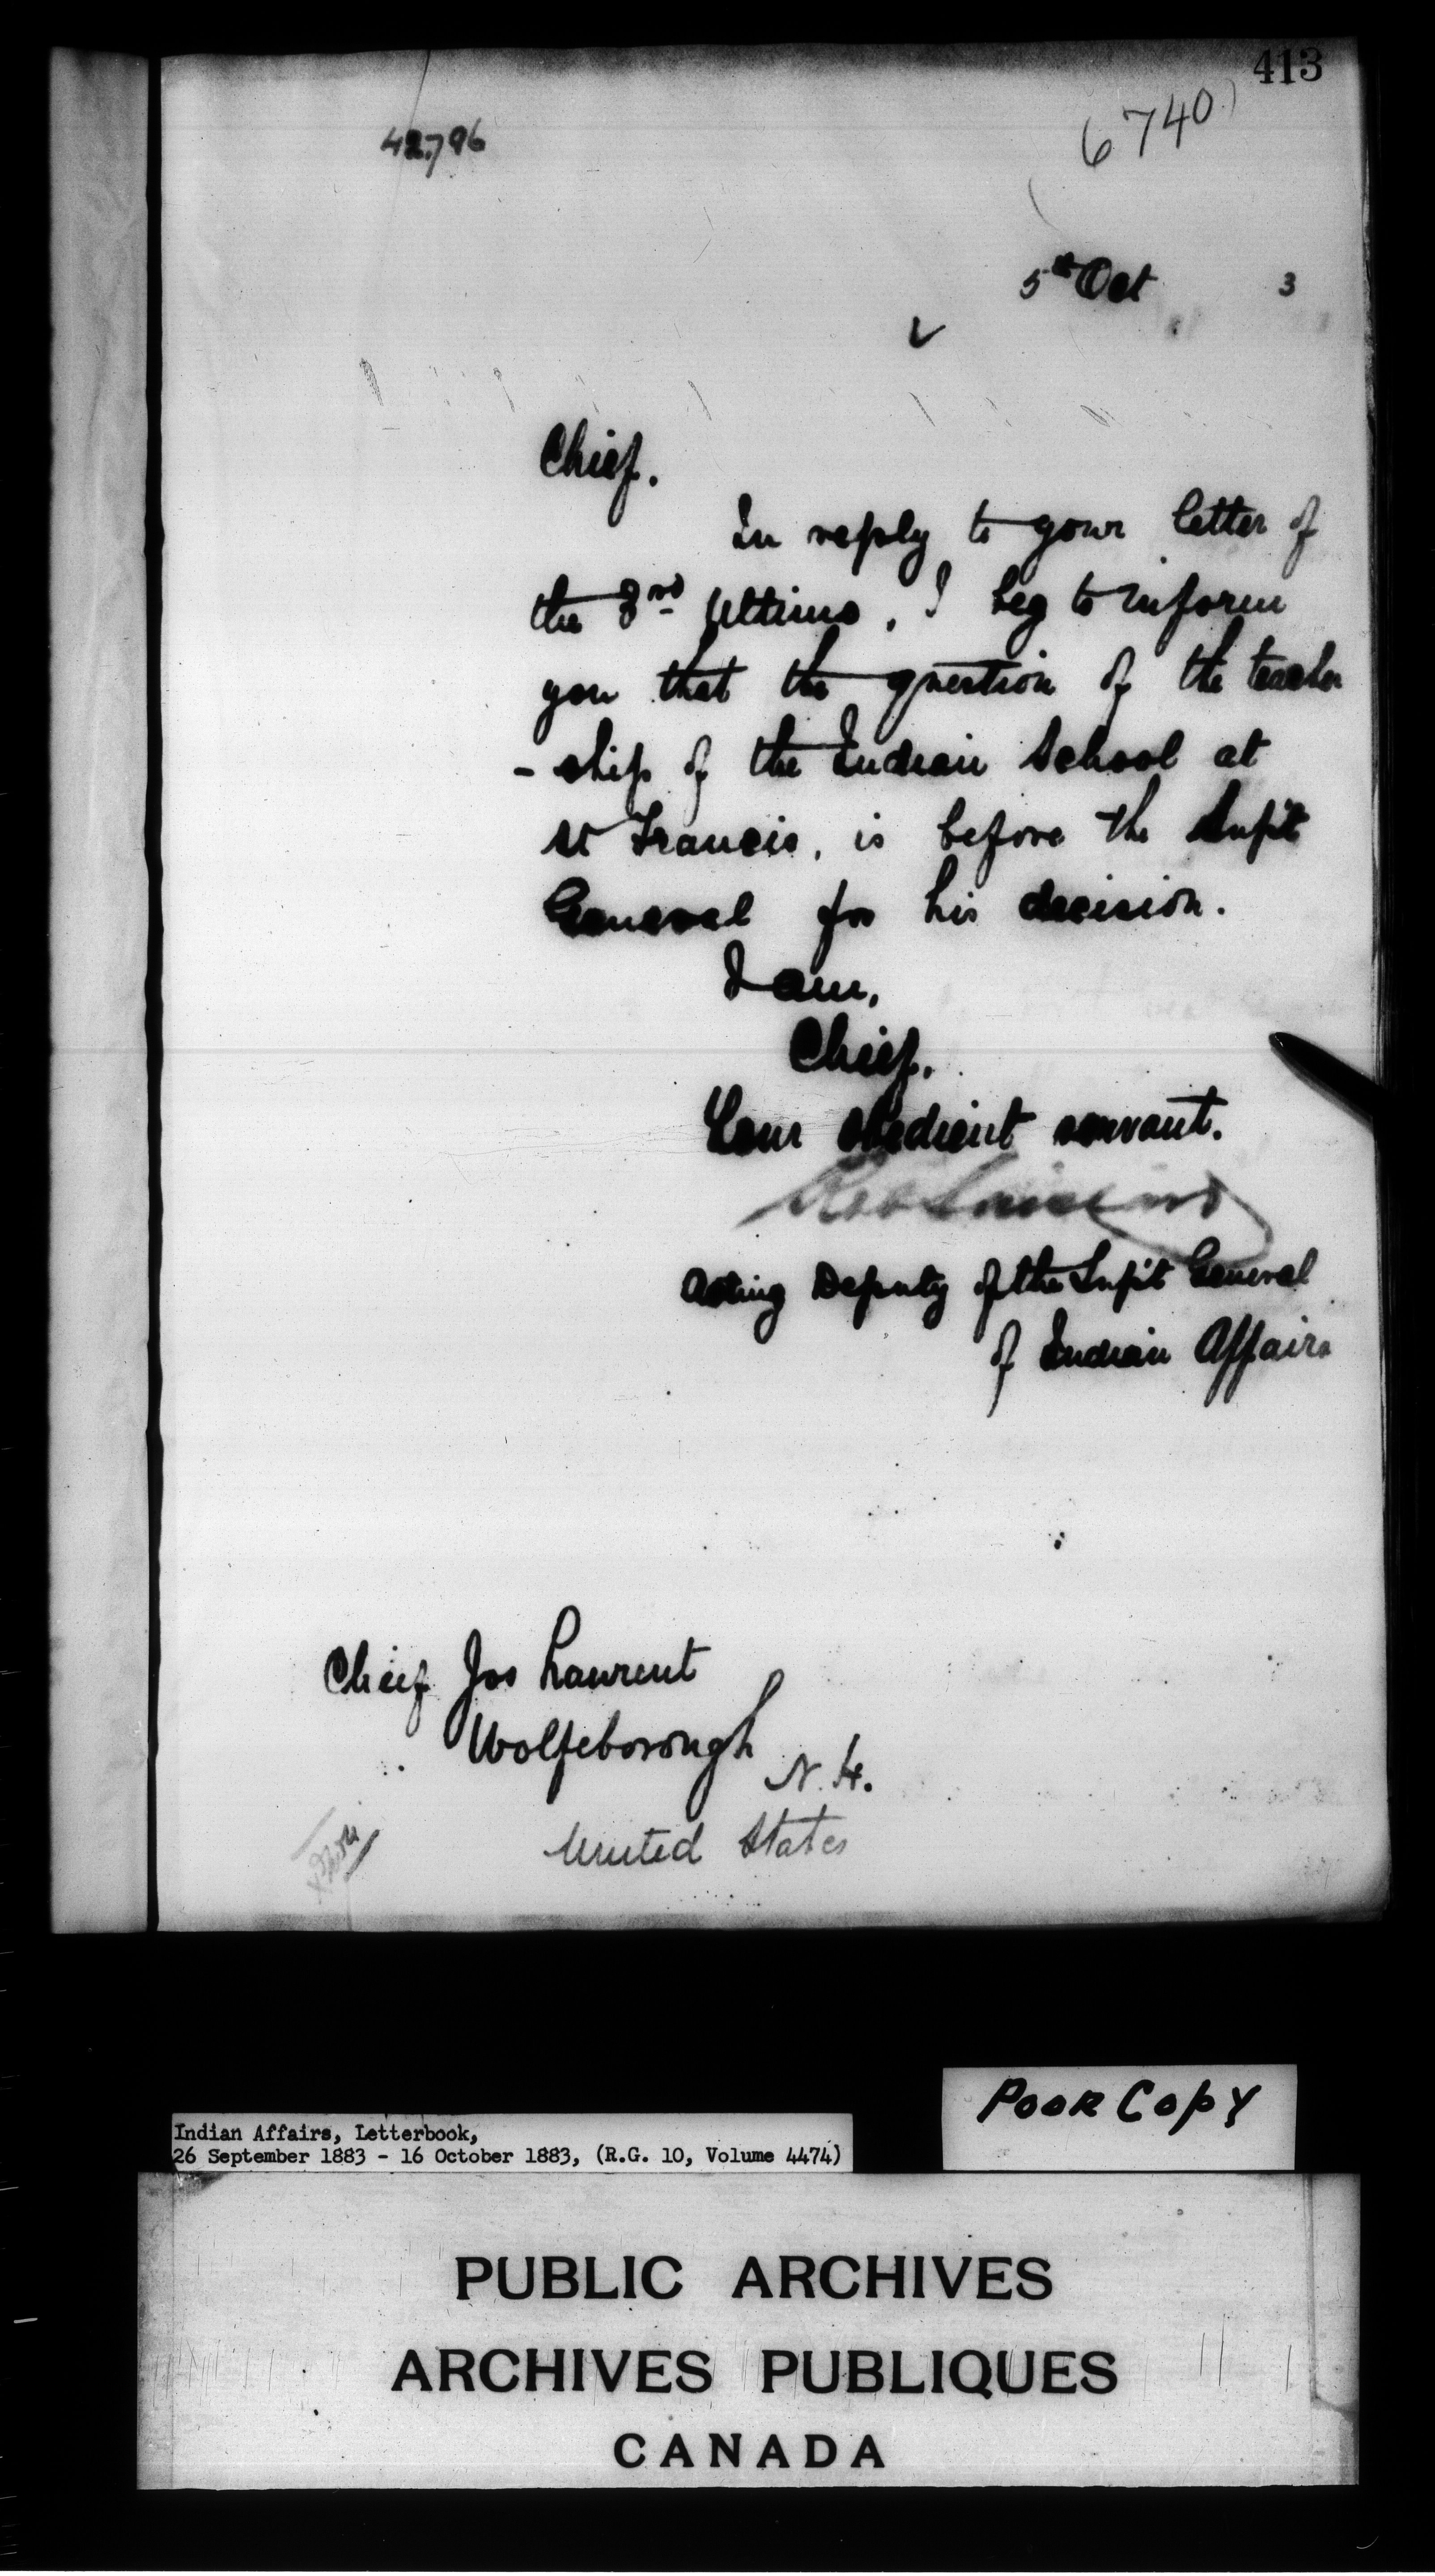 413
42,796
6740
5th Oct 3
Chief.
In reply to your letter of
the 3rd Ultimo, I beg to inform
you that the question of the teacher
-ship of the Indian School at
St Francis, is before the Supt
General for his decision.
I am,
Chief.
Your obedient servant.
Acting Deputy of the Supt General
of Indian Affairs
Chief Jos Laurent
Wolfeborough
N.H.
United States
POOR COPY
Indian Affairs, Letterbook,
26 September 1883 - 16 October 1883, (R.G. 10, Volume 4474)
PUBLIC ARCHIVES
ARCHIVES PUBLIQUES
CANADA